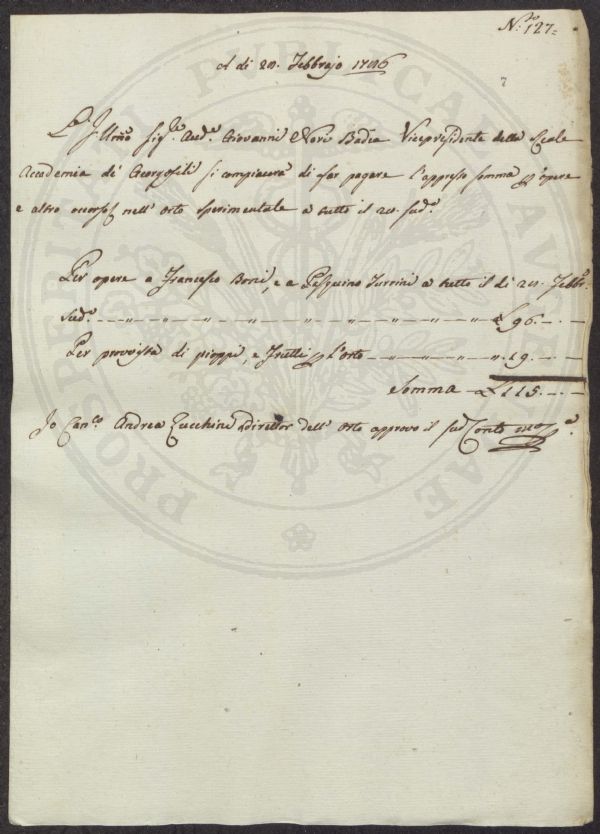 N.º 127=
A dì 20. Febbrajo 1786
L' Illmo Sig.re Aud.e Giovanni Neri Badia Vicepresidente della Reale
Accademia de' Georgofili si compiacerà di far pagare l'appresso somma p opere
e altro occorso nell' Orto Sperimentale a tutto il 20. sud.o
Per opere a Francesco Borri, e a Pasquino Turrini a tutto il dì 20. Febb.o
Sud.o £ 96. - -
Per provvista di pioppi, e Frutti p l'Orto " 19. - -
Somma £ 115. - -
Io Can.co Andrea Zucchini Direttor dell' Orto approvo il sud. Conto
PROSPERITATI PUBLICAE AUGENDAE